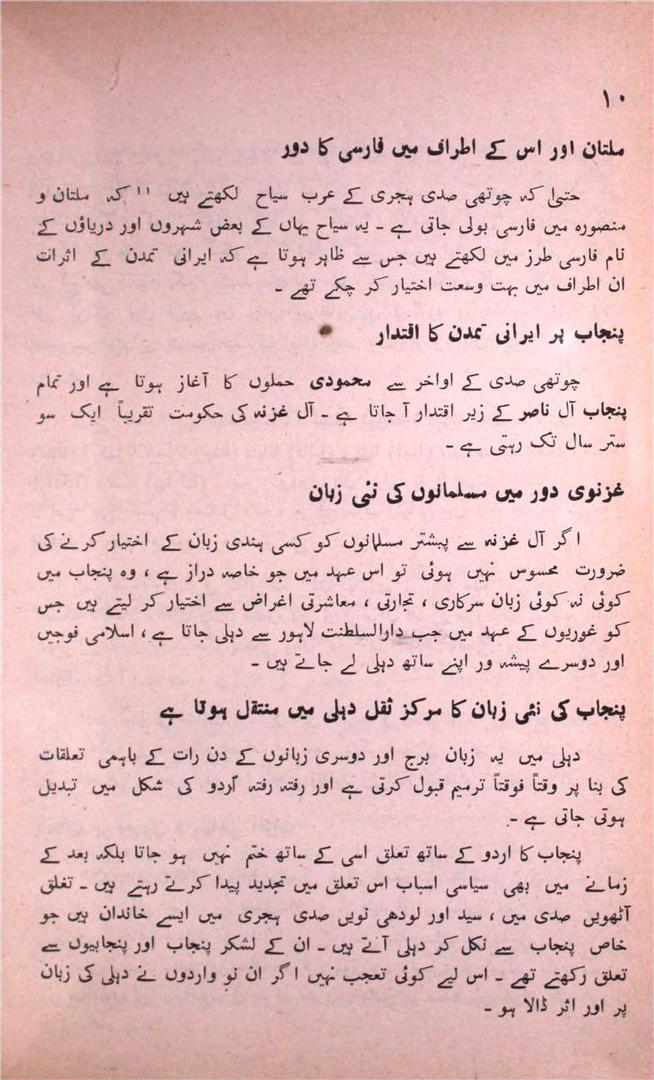 ۱۰
ملتان اور اس کے اطراف میں فارسی کا دور
حتیٰ کہ چوتھی صدی ہجری کے عرب سیاح لکھتے ہیں '' کہ ملتان و
منصورہ میں فارسی بولی جاتی ہے ۔ یہ سیاح یہاں کے بعض شہروں اور دریاؤں کے
نام فارسی طرز میں لکھتے ہیں جس سے ظاہر ہوتا ہے کہ ایرانی تمدن کے اثرات
ان اطراف میں بہت وسعت اختیار کر چکے تھے ۔
پنجاب پر ایرانی تمدن کا اقتدار
چوتھی صدی کے اواخر سے محمودی حملوں کا آغاز ہوتا ہے اور تمام
پنجاب آل ناصر کے زیر اقتدار آ جاتا ہے ۔ آل غزنہ کی حکومت تقریباً ایک سو
ستر سال تک رہتی ہے ۔
غزنوی دور میں مسلمانوں کی نئی زبان
اگر آل غزنہ سے پیشتر مسلمانوں کو کسی ہندی زبان کے اختیار کرنے کی
ضرورت محسوس نہیں ہوئی تو اس عہد میں جو خاصہ دراز ہے ، وہ پنجاب میں
کوئی نہ کوئی زبان سرکاری ، تجارتی ، معاشرتی اغراض سے اختیار کر لیتے ہیں جس
کو غوریوں کے عہد میں جب دارالسلطنت لاہور سے دہلی جاتا ہے ، اسلامی فوجیں
اور دوسرے پیشہ ور اپنے ساتھ دہلی لے جاتے ہیں ۔
پنجاب کی نئی زبان کا مرکز ثقل دہلی میں منتقل ہوتا ہے
دہلی میں یہ زبان برج اور دوسری زبانوں کے دن رات کے باہمی تعلقات
کی بنا پر وقتاً فوقتاً ترمیم قبول کرتی ہے اور رفتہ رفتہ اُردو کی شکل میں تبدیل
ہوتی جاتی ہے ۔
پنجاب کا اردو کے ساتھ تعلق اسی کے ساتھ ختم نہیں ہو جاتا بلکہ بعد کے
زمانے میں بھی سیاسی اسباب اس تعلق میں تجدید پیدا کرتے رہتے ہیں ۔ تغلق
آٹھویں صدی میں ، سید اور لودھی نویں صدی ہجری میں ایسے خاندان ہیں جو
خاص پنجاب سے نکل کر دہلی آتے ہیں ۔ ان کے لشکر پنجاب اور پنجابیوں سے
تعلق رکھتے تھے ۔ اس لیے کوئی تعجب نہیں اگر ان نو واردوں نے دہلی کی زبان
پر اور اثر ڈالا ہو ۔